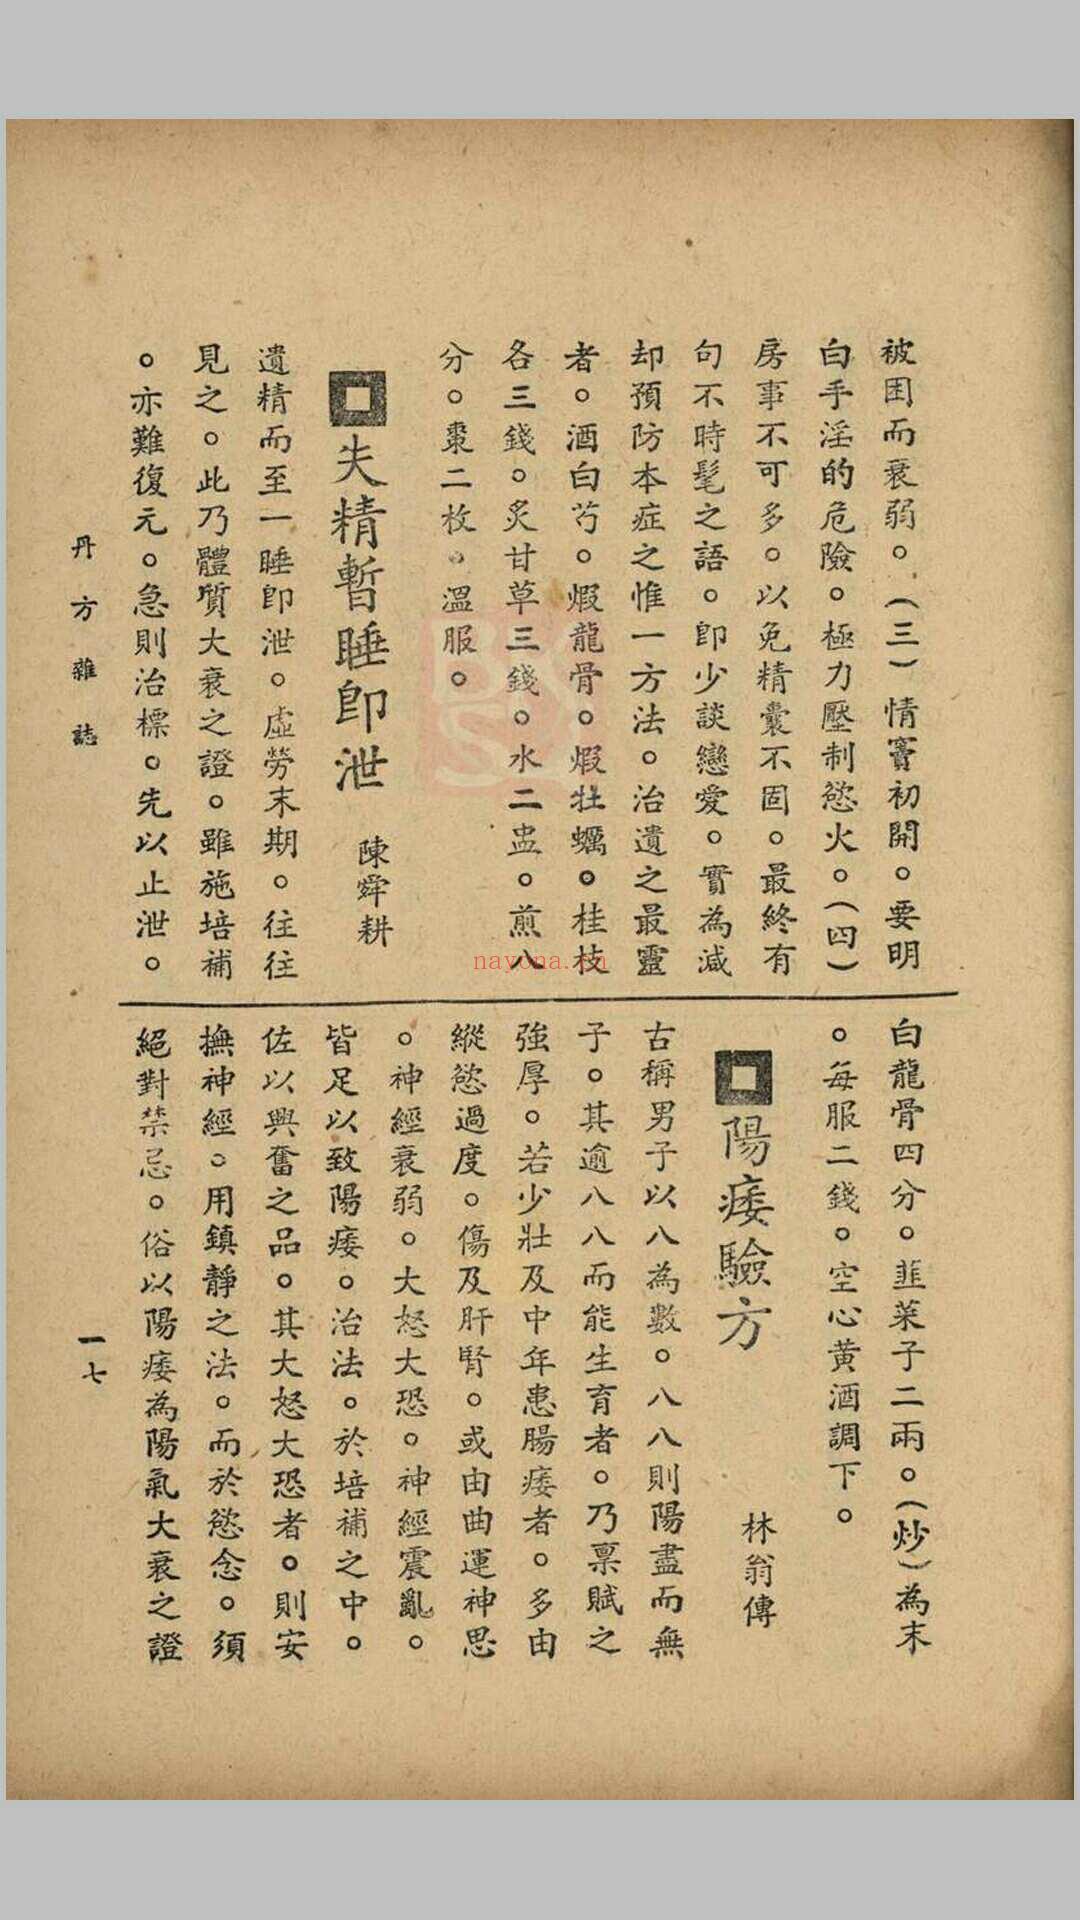 被困而衰弱。(三)情竇初開。要明
白手淫的危險。極力壓制慾火。(四)
房事不可多。以免精囊不固。最終有
句不時髦之語。卽少談戀愛。實為減
却預防本症之惟一方法。治遺之最靈
者。酒白芍。煆龍骨。煆牡蠣。桂枝
各三錢。炙甘草三錢。水二盅。煎八
分。棗二枚。溫服。
失精暫睡卽泄 陳舜耕
遺精而至一睡卽泄。虛勞末期。往往
見之。此乃體質大衰之證。雖施培補
。亦難復元。急則治標。先以止泄。
白龍骨四分。韮菜子二兩。(炒)為末
。每服二錢。空心黄酒調下。
陽痿驗方 林翁傳
古稱男子以八為數。八八則陽盡而無
子。其逾八八而能生育者。乃禀賦之
強厚。若少壯及中年患腸痿者。多由
縱慾過度。傷及肝腎。或由曲運神思
。神經衰弱。大怒大恐。神經震亂。
皆足以致陽痿。治法。於培補之中。
佐以興奮之品。其大怒大恐者。則安
撫神經。用鎮靜之法。而於慾念。須
絕對禁忌。俗以陽痿為陽氣大衰之證
丹方雜誌
一七
nayona.cn